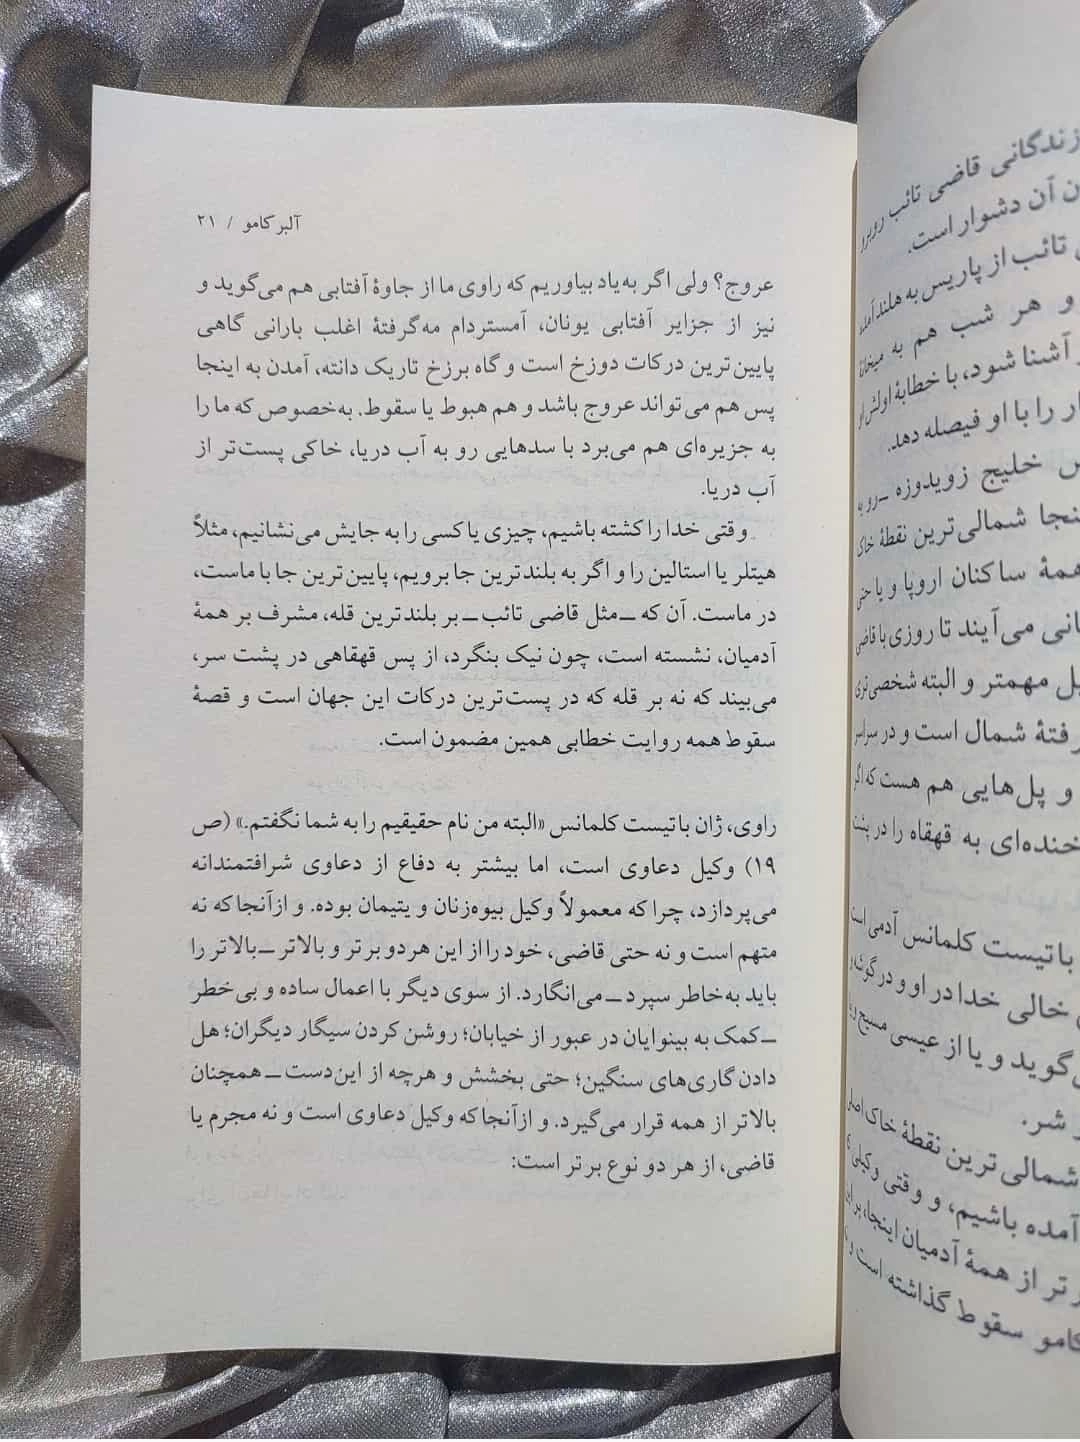 آلبر کامو / ۲۱
عروج؟ ولی اگر به‌یاد بیاوریم که راوی ما از جاوهٔ آفتابی هم می‌گوید و
نیز از جزایر آفتابی یونان، آمستردام مه‌گرفتهٔ اغلب بارانی گاهی
پایین‌ترین درکات دوزخ است و گاه برزخ تاریک دانته، آمدن به اینجا
پس هم می‌تواند عروج باشد و هم هبوط یا سقوط. به‌خصوص که ما را
به جزیره‌ای هم می‌برد با سدهایی رو به آب دریا، خاکی پست‌تر از
آب دریا.
وقتی خدا را کشته باشیم، چیزی یا کسی را به جایش می‌نشانیم، مثلاً
هیتلر یا استالین را و اگر به بلندترین جا برویم، پایین‌ترین جا با ماست،
در ماست. آن که ــ مثل قاضی تائب ــ بر بلندترین قله، مشرف بر همهٔ
آدمیان، نشسته است، چون نیک بنگرد، از پس قهقاهی در پشت سر،
می‌بیند که نه بر قله که در پست‌ترین درکات این جهان است و قصهٔ
سقوط همه روایت خطابی همین مضمون است.
راوی، ژان باتیست کلمانس «البته من نام حقیقیم را به شما نگفتم.» (ص
۱۹) وکیل دعاوی است، اما بیشتر به دفاع از دعاوی شرافتمندانه
می‌پردازد، چرا که معمولاً وکیل بیوه‌زنان و یتیمان بوده. و از آنجا که نه
متهم است و نه حتی قاضی، خود را از این هردو برتر و بالاتر ــ بالاتر را
باید به‌خاطر سپرد ــ می‌انگارد. از سوی دیگر با اعمال ساده و بی‌خطر
ــ کمک به بینوایان در عبور از خیابان؛ روشن کردن سیگار دیگران؛ هل
دادن گاری‌های سنگین؛ حتی بخشش و هرچه از این‌دست ــ همچنان
بالاتر از همه قرار می‌گیرد. و از آنجا که وکیل دعاوی است و نه مجرم یا
قاضی، از هر دو نوع برتر است:
زندگانی قاضی تائب روبرو
آن دشوار است.
تائب از پاریس به هلند آمده
و هر شب هم به میخانهٔ
آشنا شود، با خطابهٔ اولش او
را با او فیصله دهد.
خلیج زویدوزه ــ رو به
شمالی‌ترین نقطهٔ خاک
همهٔ ساکنان اروپا و یا حتی
می‌آیند تا روزی با قاضی
مهمتر و البته شخصی‌تری
شمال است و در سراسر
و پل‌هایی هم هست که اگر
خنده‌ای به قهقاه را در پشت
باتیست کلمانس آدمی است
خالی خدا در او و در گوشه و
گوید و یا از عیسی مسیح و
شر.
شمالی‌ترین نقطهٔ خاک
آمده باشیم، و وقتی وکیلی
تر از همهٔ آدمیان اینجا، بر این
سقوط گذاشته است و